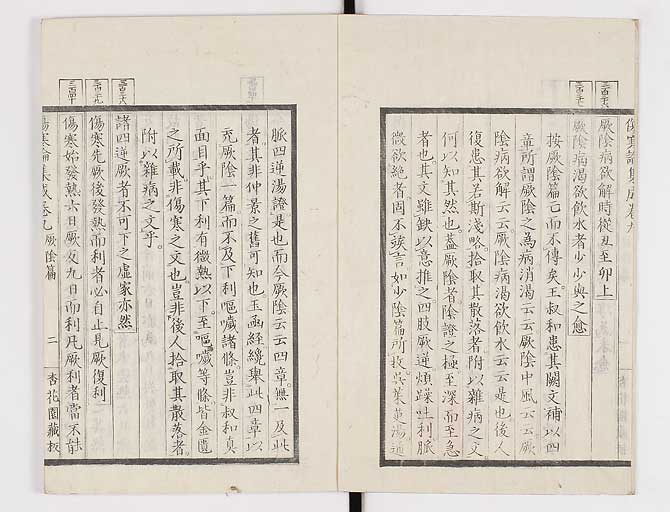 傷寒論集成卷九
三百三十六
厥陰病欲解時從丑至卯上
三百三十七
厥陰病渴欲飲水者少少與之愈
按厥陰篇亡而不傳矣王叔和患其闕文補以四
章所謂厥陰之為病消渴云云厥陰中風云云厥
陰病欲解云云厥陰病渴欲飲水云云是也後人
復患其若斯淺略拾取其散落者附以雜病之文
何以知其然也蓋厥陰者陰證之極至深而至急
者也其文雖缺以意推之四肢厥逆煩躁吐利脈
微欲絶者固不竢言如少陰篇所收吳茱萸湯通
脈四逆湯證是也而今厥陰云云四章無一及此
者其非仲景之舊可知也玉函經纔舉此四章以
充厥陰一篇而不及下利嘔噦諸條豈非叔和真
面目乎其下利有微熱以下至嘔噦等條皆金匱
之所載非傷寒之文也豈非後人拾取其散落者
附以雜病之文乎
三百三十八
諸四逆厥者不可下之虛家亦然
三百三十九
傷寒先厥後發熱而利者必自止見厥復利
三百四十
傷寒始發熱六日厥反九日而利凡厥利者當不能
傷寒論集成卷九 厥陰篇 二 杏花園藏板